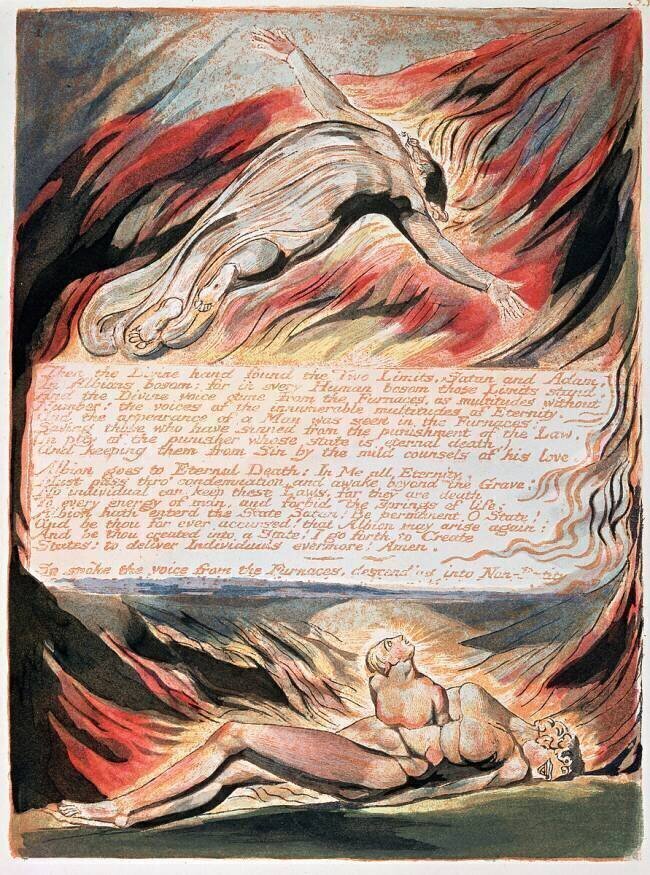 Then the Divine hand found the Two Limits, Satan and Adam,
In Albions bosom: for in every Human bosom those Limits stand.
And the Divine voice came from the Furnaces, as multitudes without
Number! the voices of the innumerable multitudes of Eternity.
And the appearance of a Man was seen in the Furnaces;
Saving those who have sinned from the punishment of the Law,
In pity of the punisher whose state is eternal death,
And keeping them from Sin by the mild counsels of his love.
Albion goes to Eternal Death: In Me all Eternity,
Must pass thro' condemnation, and awake beyond the Grave:
No individual can keep these Laws, for they are death
To every energy of man, and forbid the springs of life;
Albion hath enterd the State Satan! Be permanent O State!
And be thou for ever accursed! that Albion may arise again:
And be thou created into a State! I go forth to Create
States: to deliver Individuals evermore! Amen.
So spoke the voice from the Furnaces, descending into Non-Entity